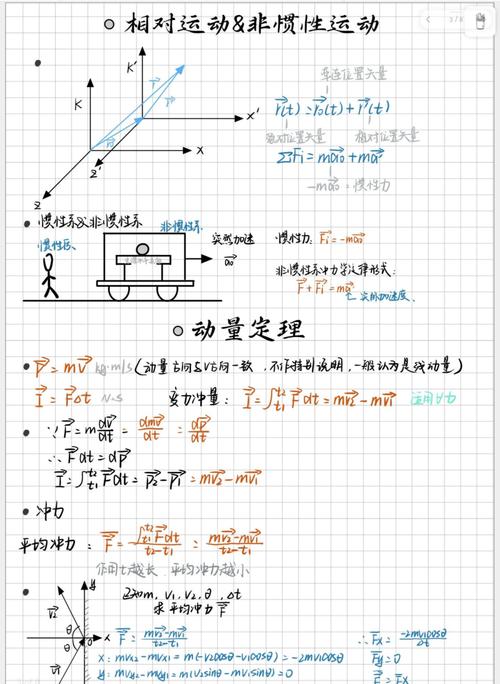 相对运动&非惯性运动
K'
K
x'
x
z'
z
牵连位置矢量
r(t)=r₀(t)+r'(t)
绝对位置矢量 相对位置矢量
ΣFi=ma₀+ma'
-ma₀=惯性力
惯性系&非惯性系 非惯性系
惯性系
突然加速
a₀
惯性力: Fi=-ma₀
非惯性系中力学定律形式:
F+Fi=ma'
动量定理
P=mv kg·m/s (动量方向与v方向一致, 不作特别说明, 一般认为是线动量)
I=FΔt N·S 变力冲量: I=∫t₁t₂Fdt=mv₂-mv₁
∵F=m dv/dt=dmv/dt=dp/dt
∴Fdt=dp
I=∫t₁t₂Fdt=P₂-P₁=mv₂-mv₁
冲力
平均冲力: F=∫t₁t₂Fdt/t₂-t₁=mv₂-mv₁/t₂-t₁
作用t越长, 平均冲力越小
已知m, v₁, v₂, θ, Δt
求平均冲力F
y
v₂
θ
θ
x
v₁
F=mv₂-mv₁/t₂-t₁
x: mvx₂-mvx₁=m(-v₂cosθ-v₁cosθ)=-2mv₁cosθ
y: mvy₂-mvy₁=m(v₂sinθ-mv₁sinθ)=0
∴Fx=-2mv₁cosθ/Δt
Fy=0